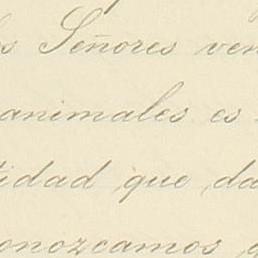 s Señores ven
animales es
tidad que da
onozcamos